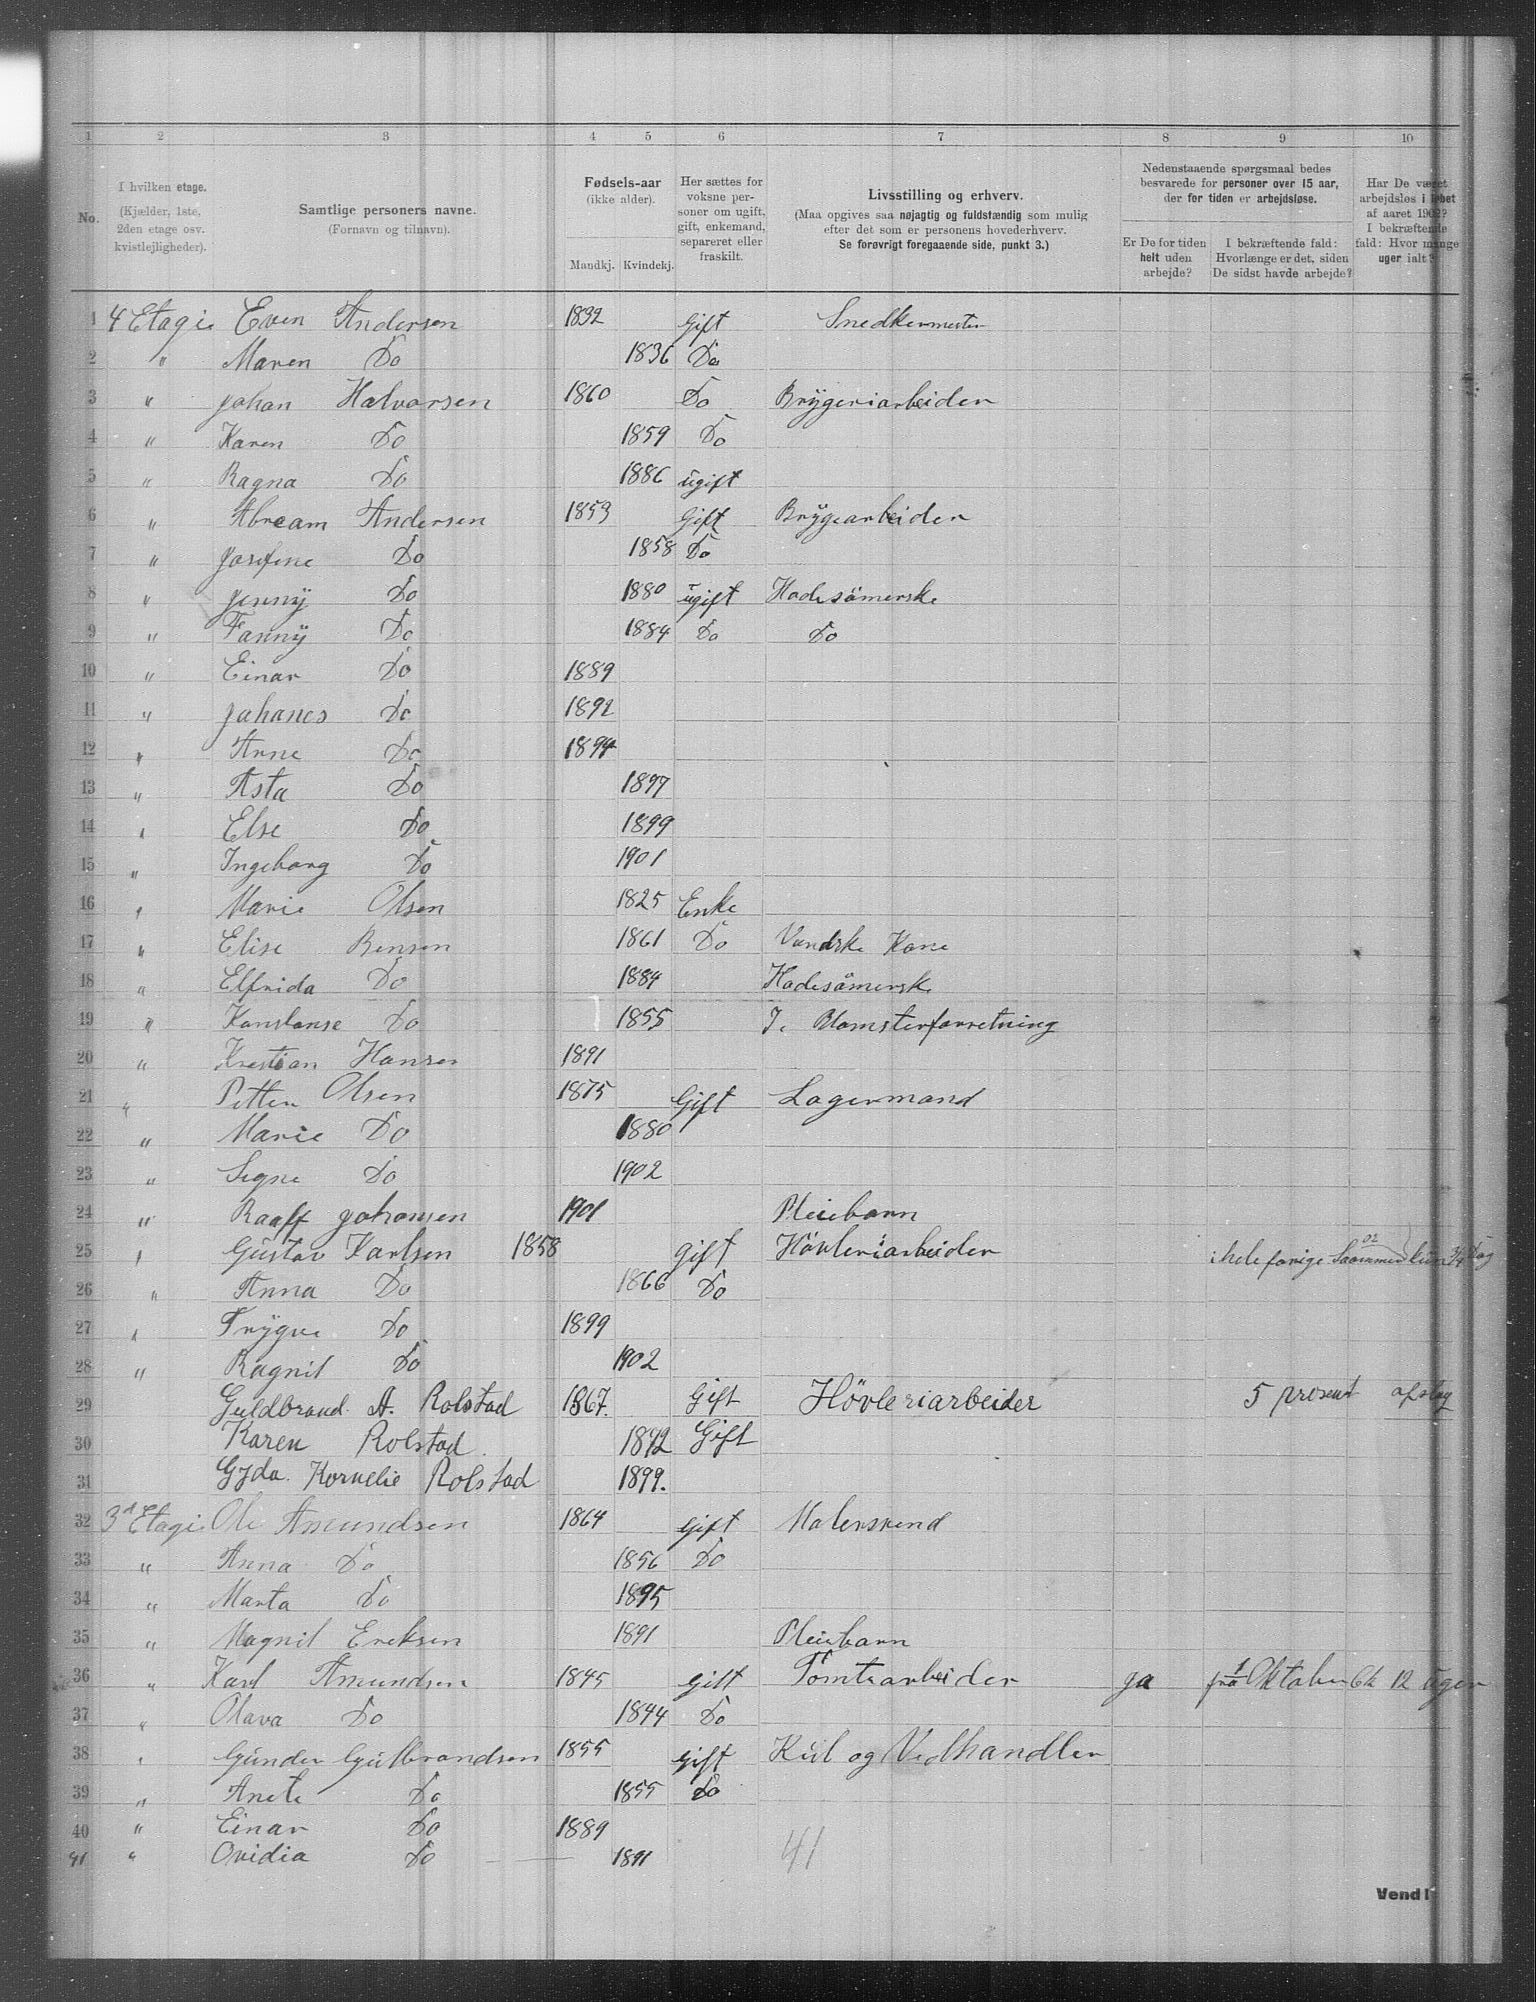 1 2 3 4 5 6 7 8 9 10
No.
I hvilken etage.
(Kjælder, 1ste,
2den etage osv.
kvistlejligheder).
Samtlige personers navne.
(Fornavn og tilnavn).
Fødsels-aar
(ikke alder).
Mandkj. Kvindekj.
Her sættes for
voksne per-
soner om ugift,
gift, enkemand,
separeret eller
fraskilt.
Livsstilling og erhverv.
(Maa opgives saa nøjagtig og fuldstændig som mulig
efter det som er personens hovederhverv.
Se forøvrigt foregaaende side, punkt 3.)
Nedenstaaende spørgsmaal bedes
besvarede for personer over 15 aar,
der for tiden er arbejdsløse.
Er De for tiden
helt uden
arbejde?
I bekræftende fald:
Hvorlænge er det, siden
De sidst havde arbejde?
Har De været
arbejdsløs i løbet
af aaret 1902?
I bekræftende
fald: Hvor mange
uger ialt?
1 4 Etagie Even Andersen 1832 Gift Snedkermester
2 " Maren Do 1836 Do
3 " Johan Halvorsen 1860 Do Brÿgeriarbeider
4 " Karen Do 1859 Do
5 " Ragna Do 1886 ugift
6 " Abream Andersen 1853 Gift Brÿgearbeider
7 " Josefine Do 1858 Do
8 " Jennÿ Do 1880 ugift Kadesömerske
9 " Fannÿ Do 1884 Do Do
10 " Einar Do 1889
11 " Johanes Do 1892
12 " Arne Do 1894
13 " Asta Do 1897
14 " Else Do 1899
15 " Ingeborg Do 1901
16 " Marie Olsen 1825 Enke
17 " Elise Bensen 1861 Do Vandske Kone
18 " Elfrida Do 1884 Kadesömersk
19 " Konstanse Do 1855 I. Blomsterforretning
20 " Krestian Hansen 1891
21 " Petter Olsen 1875 Gift Lagermand
22 " Marie Do 1880
23 " Signe Do 1902
24 " Raaff Johansen 1901 Pleiebarn
25 " Gustav Karlsen 1858 Gift Hövleriarbeider i hele forige Saommer 02 kun 3/4 Dag
26 " Anna Do 1866 Do
27 " Trÿgve Do 1899
28 " Ragnil Do 1902
29 Guldbrand A. Rolstad 1867. Gift Hövleriarbeider 5 prosent afslag
30 Karen Rolstad 1872 Gift
31 Gyda Kornelie Rolstad 1899.
32 3d Etagie Ole Amundsen 1864 Gift Malersvend
33 " Anna Do 1856 Do
34 " Marta Do 1895
35 " Magnil Ereksen 1891 Pleiebarn
36 " Karl Amundsen 1845 Gift Tömtearbeider ja fra 1 Oktober 12 uger
37 " Olava Do 1844 Do
38 " Gunder Gulbrandsen 1855 Gift Kul og Vedhandler
39 " Anete Do 1855 Do
40 " Einar Do 1889
41 " Ovidia Do 1891
41
Vend!